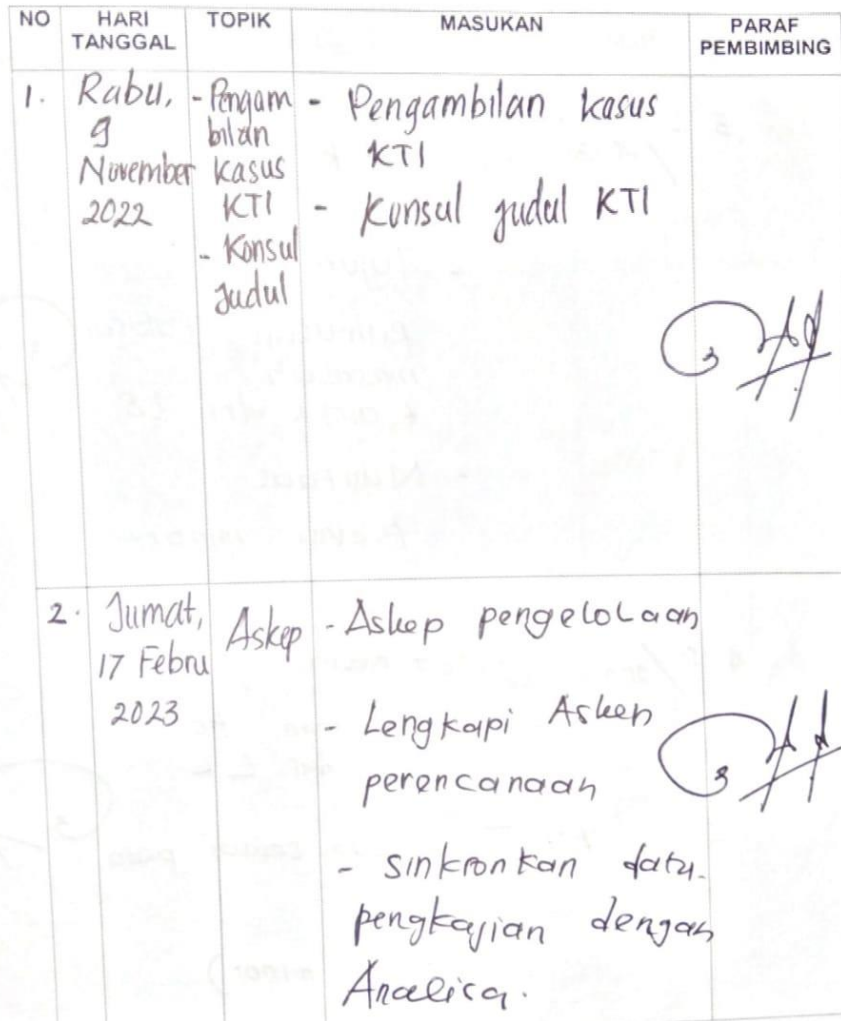 NO HARI TANGGAL TOPIK MASUKAN PARAF PEMBIMBING
1. Rabu, 9 November 2022
- Pengam
bilan
kasus
KTI
- Konsul
Judul
- Pengambilan kasus
KTI
- Konsul judul KTI
2. Jumat,
17 Febru
2023
Askep
- Askep pengelolaan
- Lengkapi Askep
perencanaan
- sinkronkan data
pengkajian dengan
Analisa.